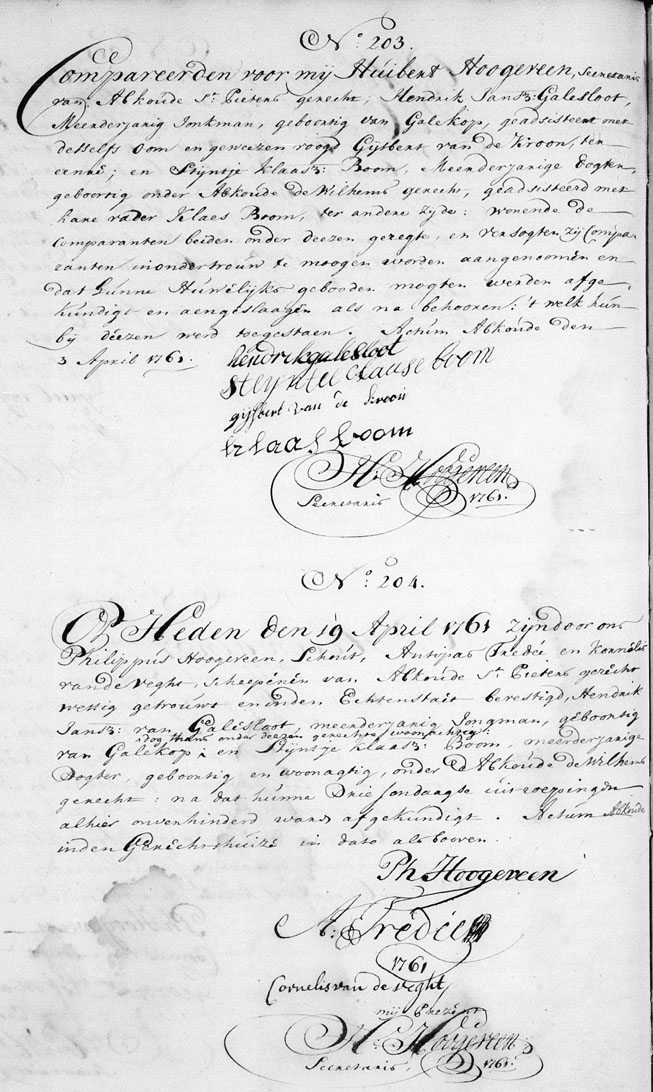 No. 203.
Compareerden voor mij Huibert Hoogeveen, Secretaris
van Abkoude St. Pieters gerecht, Hendrik Jansz: Galesloot,
Meerderjarig Jonkman, geboortig van Galekop, geadsisteert met
desselfs Oom en geweezen voogd Gijsbert van de Kroon, ter
eenre; en Stijntje Klaasz: Boom, Meerderjarige Dogter,
geboortig onder Abkoude de Wilhems gerecht, geadsisteerd met
hare vader Klaes Boom, ter andere zyde: wonende de
Comparanten beiden onder deezen geregte, en versogten zij Compa-
ranten in ondertrouw te moogen worden aangenoomen en
dat hunne Huwelijks gebooden mogten werden afge-
kundigt en aengeslaagen als na behooren: 't welk hun
bij deezen werd toegestaen. Actum Abkoude den
3 April 1761.
hendrik galesloot
Steyntie Claase boom
gijsbert van de kroon
klaas boom
Hs. Hoogeveen
Secretaris 1761.
No. 204.
Op Heden den 19 April 1761 zijn door ons
Philippus Hoogeveen, Schout, Antipas Tredée en Kornelis
van de Veght, Scheepenen van Abkoude St. Pieters gerecht
wettig getrouwt en in den Echtenstaet bevestigd, Hendrik
Jansz: van Galesloot, meerderjarig Jongman, geboortig
nog thans onder deezen gerechte woonachtig:
van Galekop; en Stijntje Klaasz: Boom, meerderjarige
Dogter, geboortig en woonagtig, onder Abkoude de Wilhems
gerecht: na dat hunne Drie sondaagse uitroepingen
alhier onverhinderd waren afgekundigt. Actum Abkoude
in den Gerechtshuize in dato als booven.
Ph Hoogeveen
A: Tredée
1761
Cornelis van de Veght
mij Prezent
Hs. Hoogeveen
Secretaris, 1761.